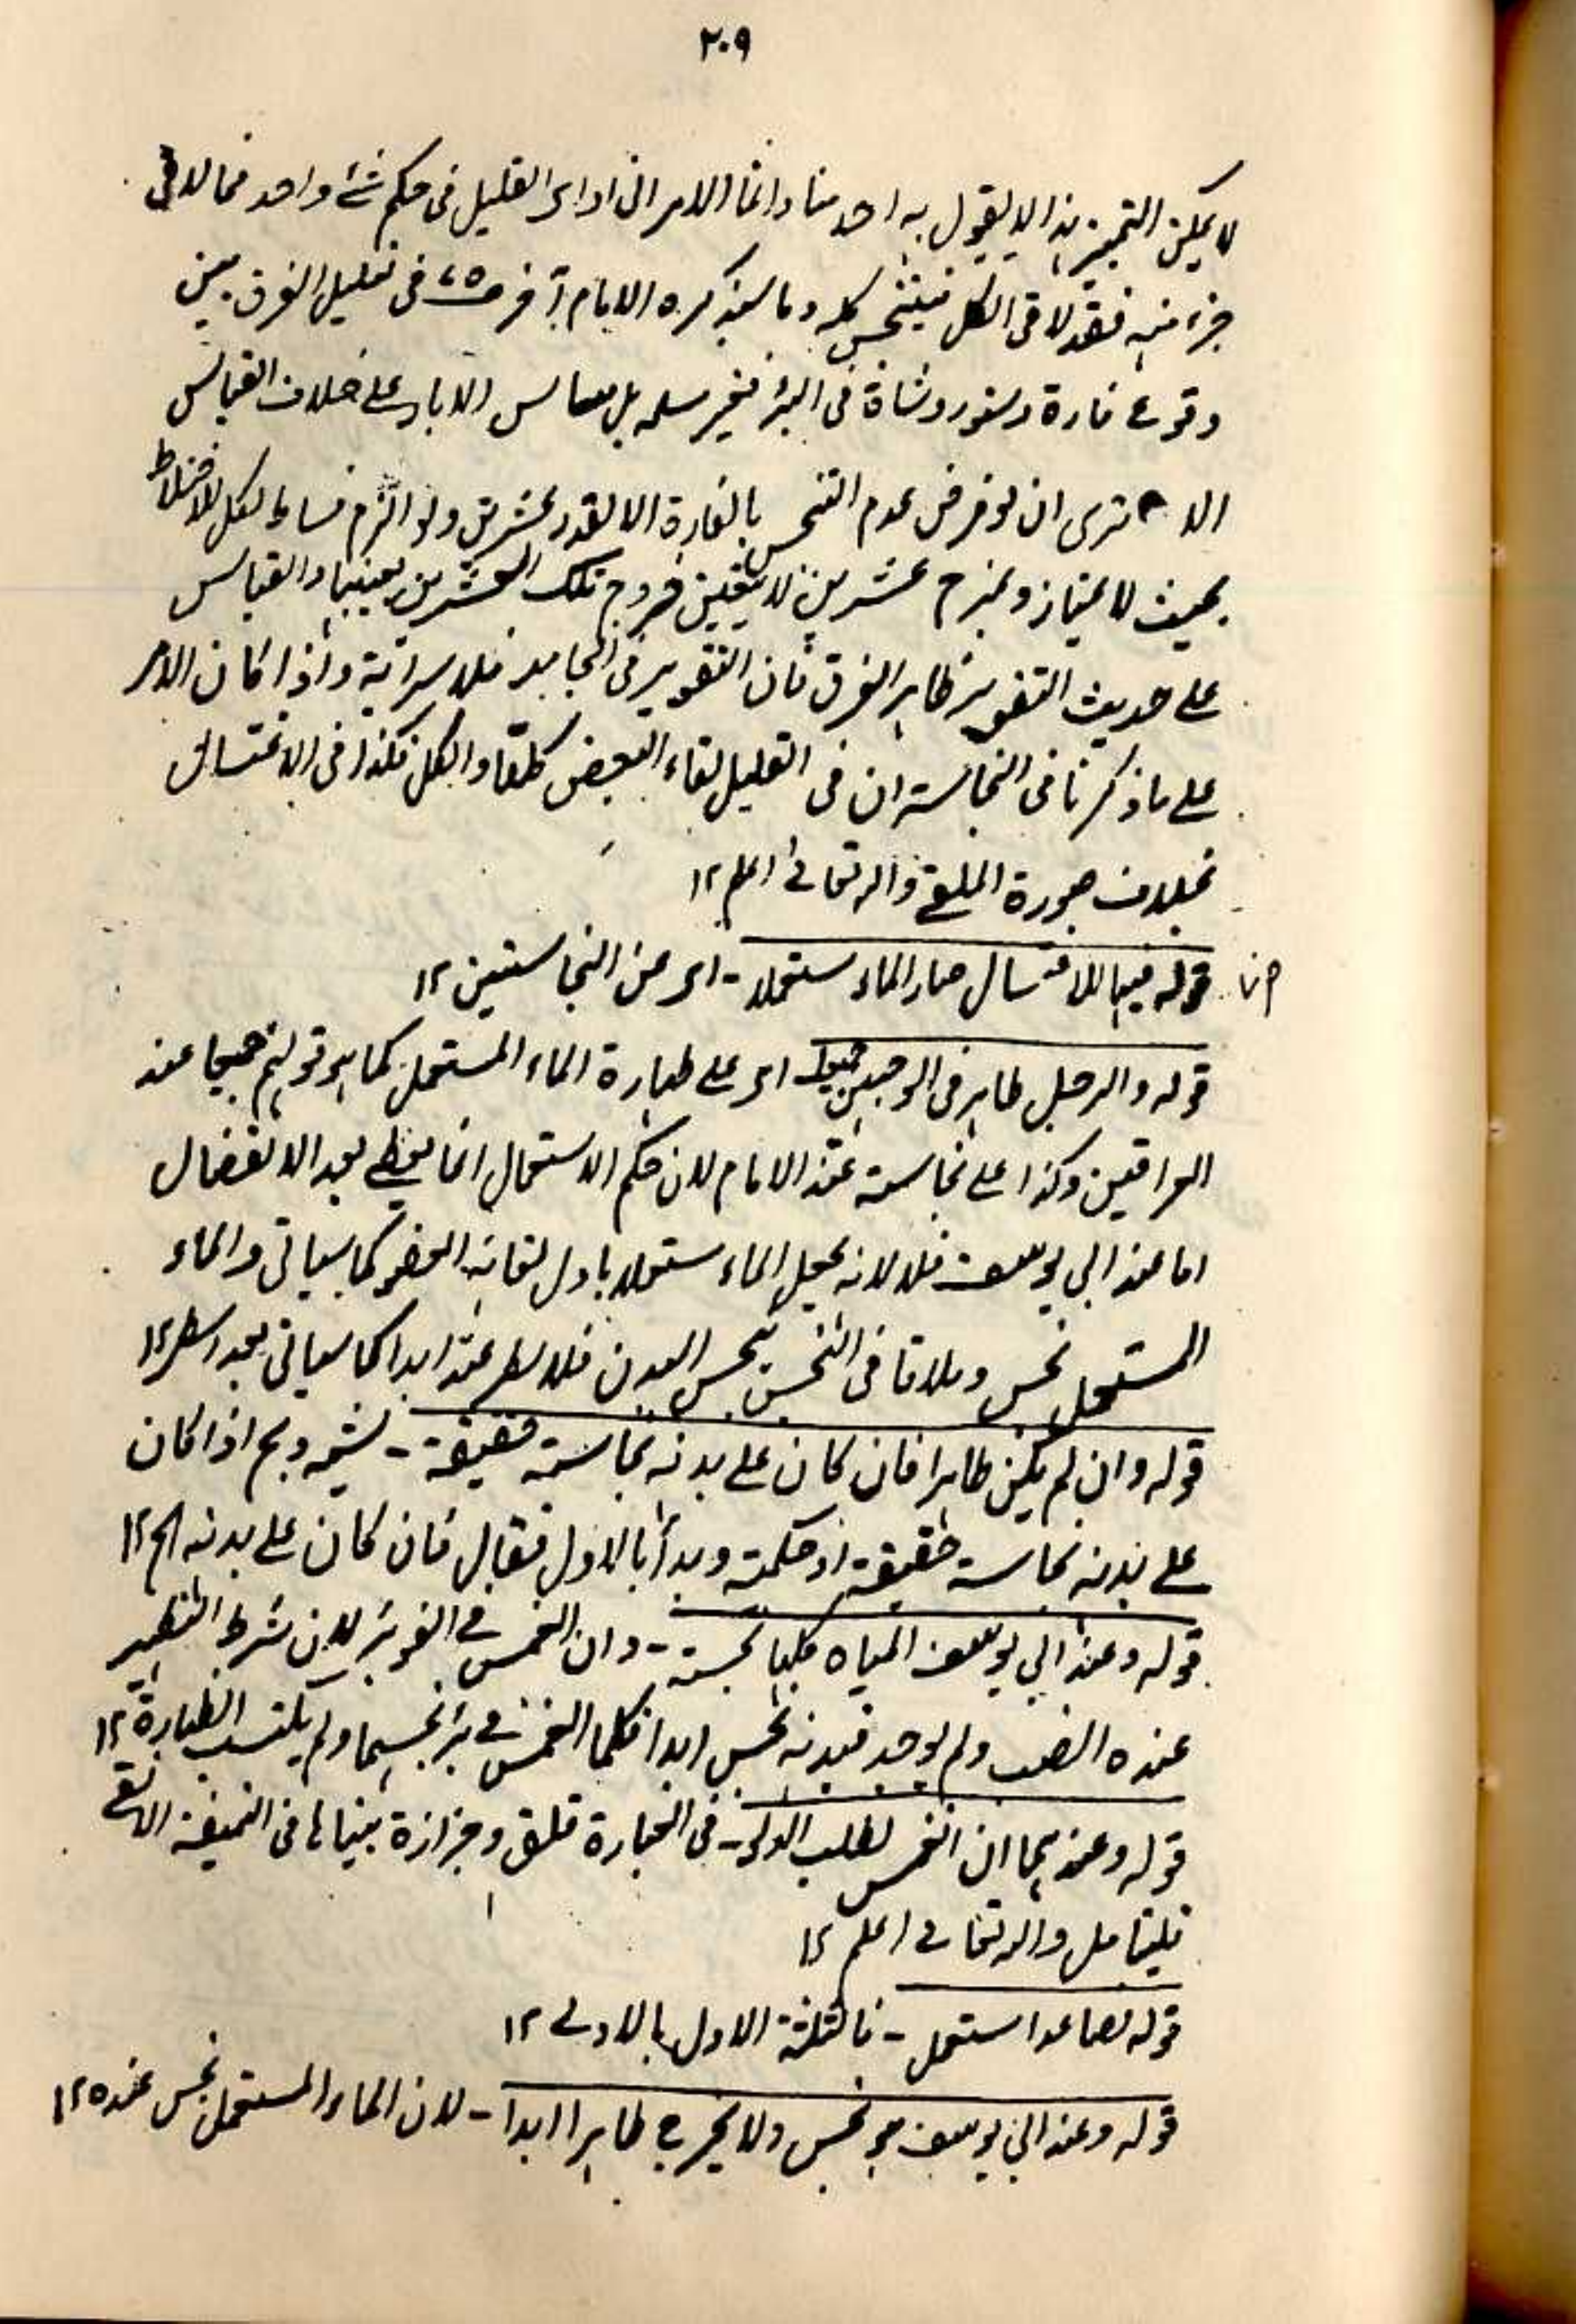 ٢٠٩
لا يمكن التمييز هذا لا يقول به احد منا وانما الامر ان اداى القليل فى حكم شئ واحد فما لاقى
جزء منه فقد لاقى الكل فيتنجس كله وما سيذكره الامام آخر فى تعليل الفرق بين
وقوع فارة وسنور وشاة فى البئر فغير مسلم بل مسائل الابار على خلاف القياس
الا ترى ان لو فرض عدم التنجس بالفارة الا لقدر عشرين ولو الزم فساد الكل للاختلاط
بحيث لا يمتاز ونزح عشرين لا يتيقن خروج تلك العشرين بعينها والقياس
على حديث التقوير ظاهر الفرق فان التقوير فى الجامد فلا سراية واذا كان الامر
على ما ذكرنا فى النجاسة ان فى القليل لقاء البعض كلقاء الكل فكذا فى الاغتسال
بخلاف صورة الملقى والله تعالى اعلم ١٢
قوله فيها للاغتسال صار الماء مستعملا - اى عن النجاستين ١٢
قوله والرجل طاهر فى الوجهين جميعا - اى على طهارة الماء المستعمل كما هو قولهم جميعا عند
العراقيين وكذا على نجاسته عند الامام لان حكم الاستعمال انما يعطى بعد الانفصال
اما عند ابي يوسف فلا لانه يجعل الماء مستعملا باول لقائه العضو كما سياتى والماء
المستعمل نجس وملاقاة النجس تنجس البدن فلا يطهر عنده ابدا كما سياتى بعد اسطر ١٢
قوله وان لم يكن طاهرا فان كان على بدنه نجاسة حقيقة - يشمل وبهم اذا كان
على بدنه نجاسة حقيقة او حكمة وبدأ بالاول فقال فان كان على بدنه الخ ١٢
قوله وعند ابي يوسف المياه كلها نجسة - وان انغمس فى الف بئر لان شرط التطهير
عنده الصب ولم يوجد فبدنه نجس ابدا فكلما انغمس فى بئر نجسها ولم يكتسب الطهارة ١٢
قوله وعندهما ان انغمس لطلب الدلو - فى العبارة قلق وحزازة بيناها فى النميقة الانقى
فليتامل والله تعالى اعلم ١٢
قوله فصاعدا استعمل - فالثلثة الاول بالاولى ١٢
قوله وعند ابي يوسف هو نجس ولا يخرج طاهرا ابدا - لان الماء المستعمل نجس عنده ١٢